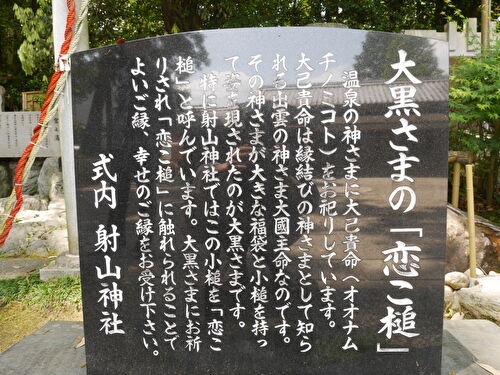 大黒さまの「恋こ槌」
温泉の神さまに大己貴命（オオナム
チノミコト）をお祀りしています。
大己貴命は縁結びの神さまとして知ら
れる出雲の神さま大國主命なのです。
その神さまが大きな福袋と小槌を持っ
て姿を現されたのが大黒さまです。
特に射山神社ではこの小槌を「恋こ
槌」と呼んでいます。大黒さまにお祈
りされ「恋こ槌」に触れられることで
よいご縁、幸せのご縁をお受け下さい。
式内 射山神社